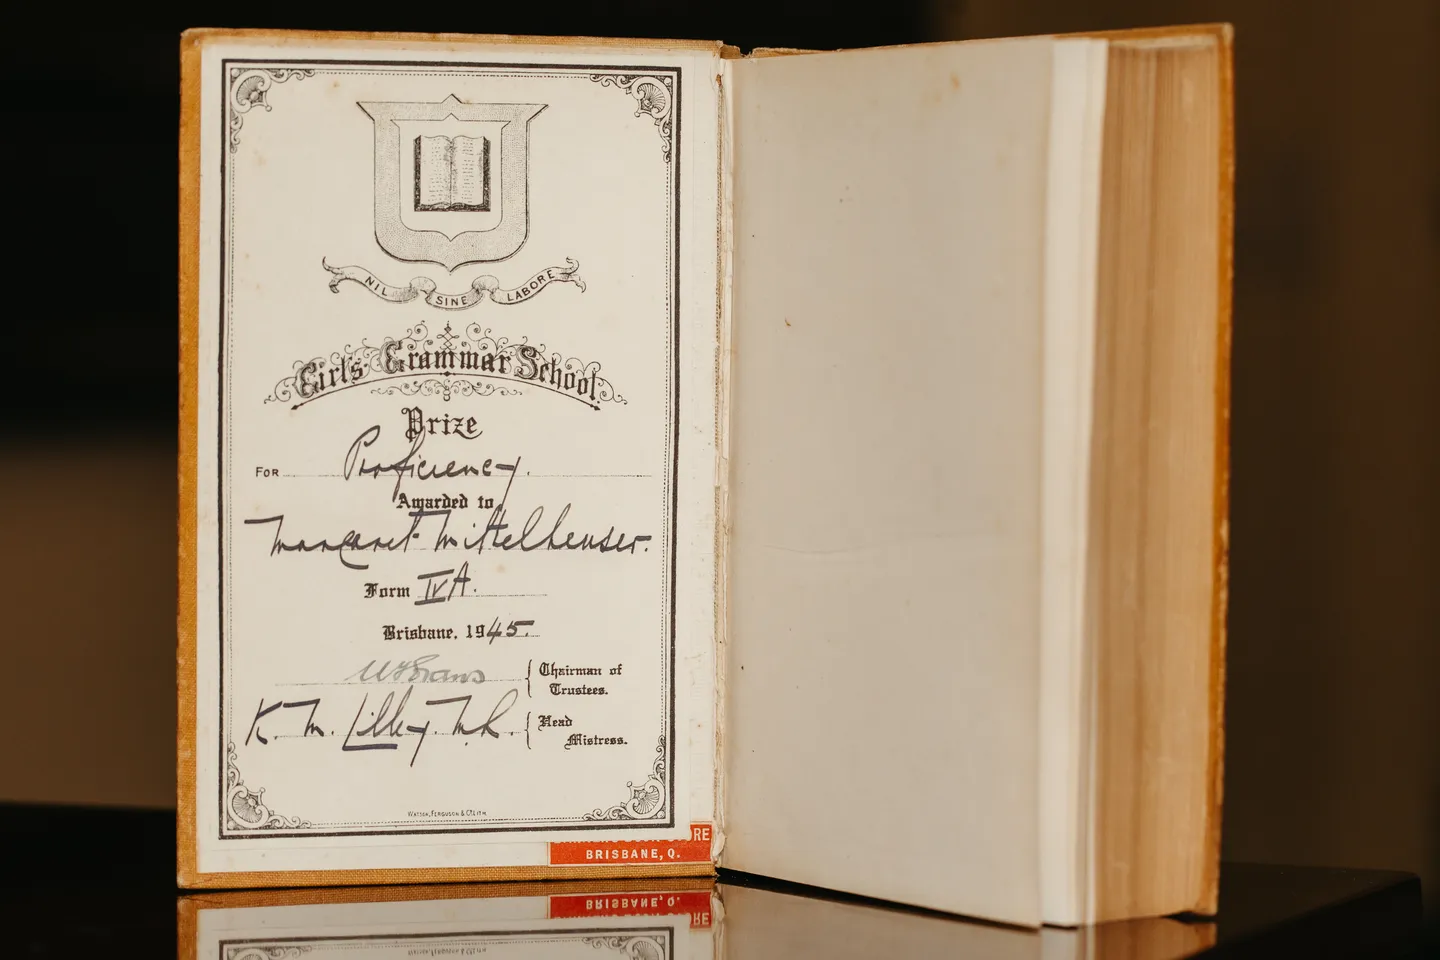 NIL SINE LABORE
Girls' Grammar School.
Prize
FOR Proficiency.
Awarded to
Margaret Mittelheuser.
Form IVA.
Brisbane, 1945.
Chairman of
Trustees.
K. M. Lilley. M.A. Head
Mistress.
WATSON, FERGUSON & CO. LITH.
RE
BRISBANE, Q.